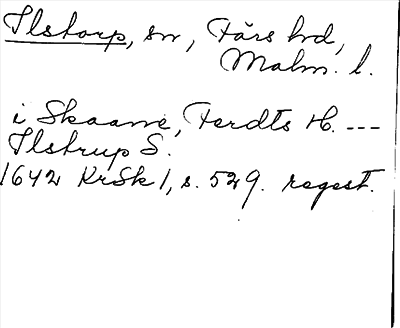 Ilstorp, sn, Färs hd,
Malm. l.
i Skaane, Ferdts H. ---
Ilstrup S.
1642 KrSk 1, s. 529. regest.